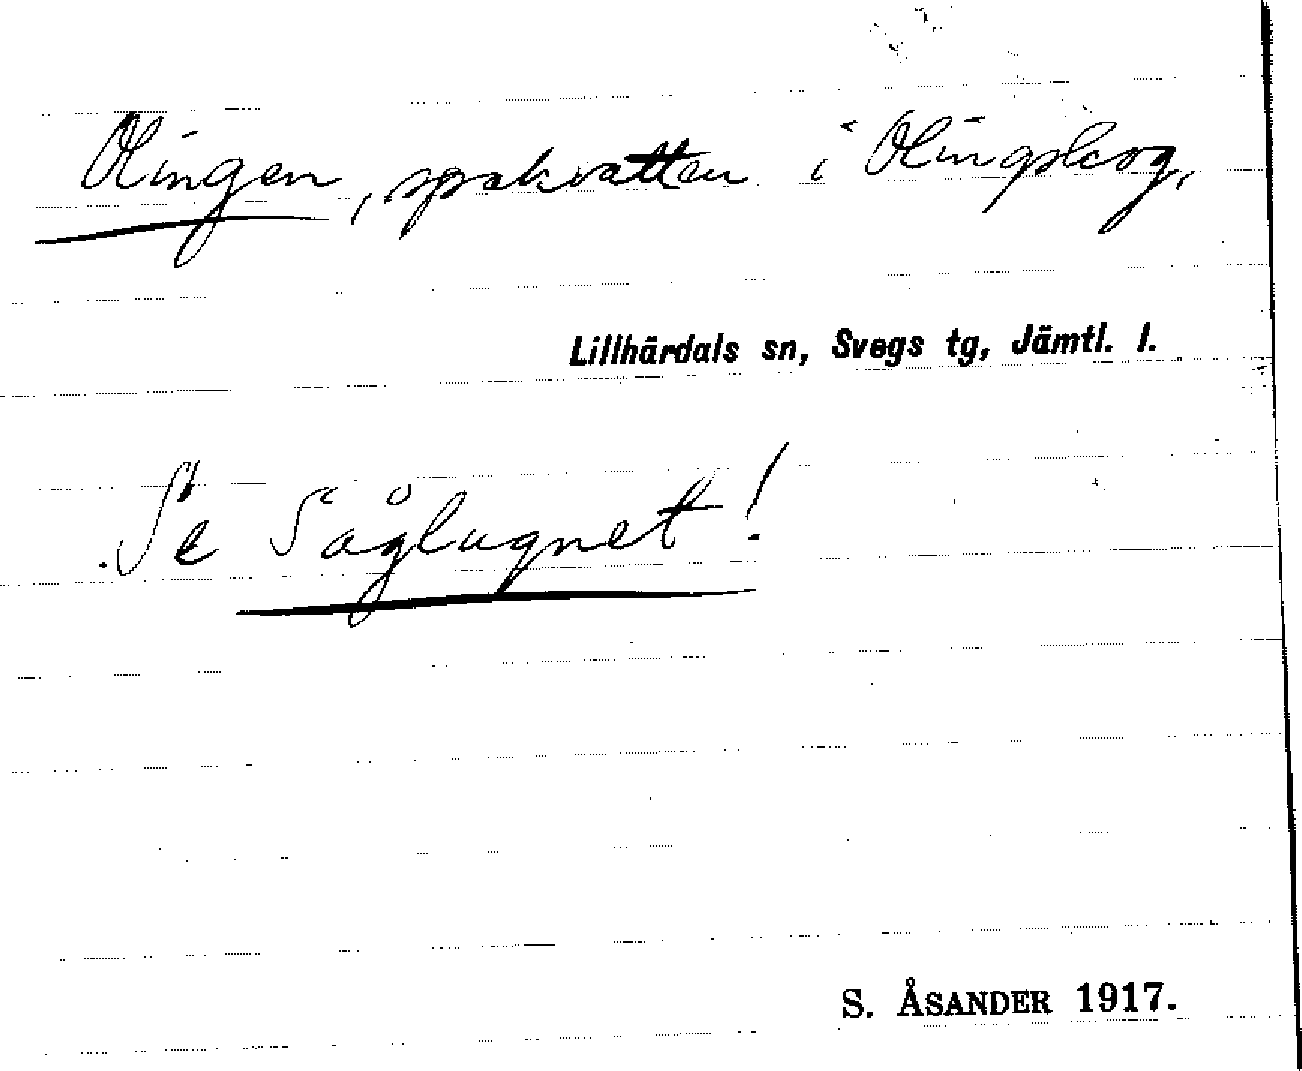 Olingen, spakvatten i Olingskog,
Lillhärdals sn, Svegs tg, Jämtl. l.
Se Såglugnet!
S. ÅSANDER 1917.